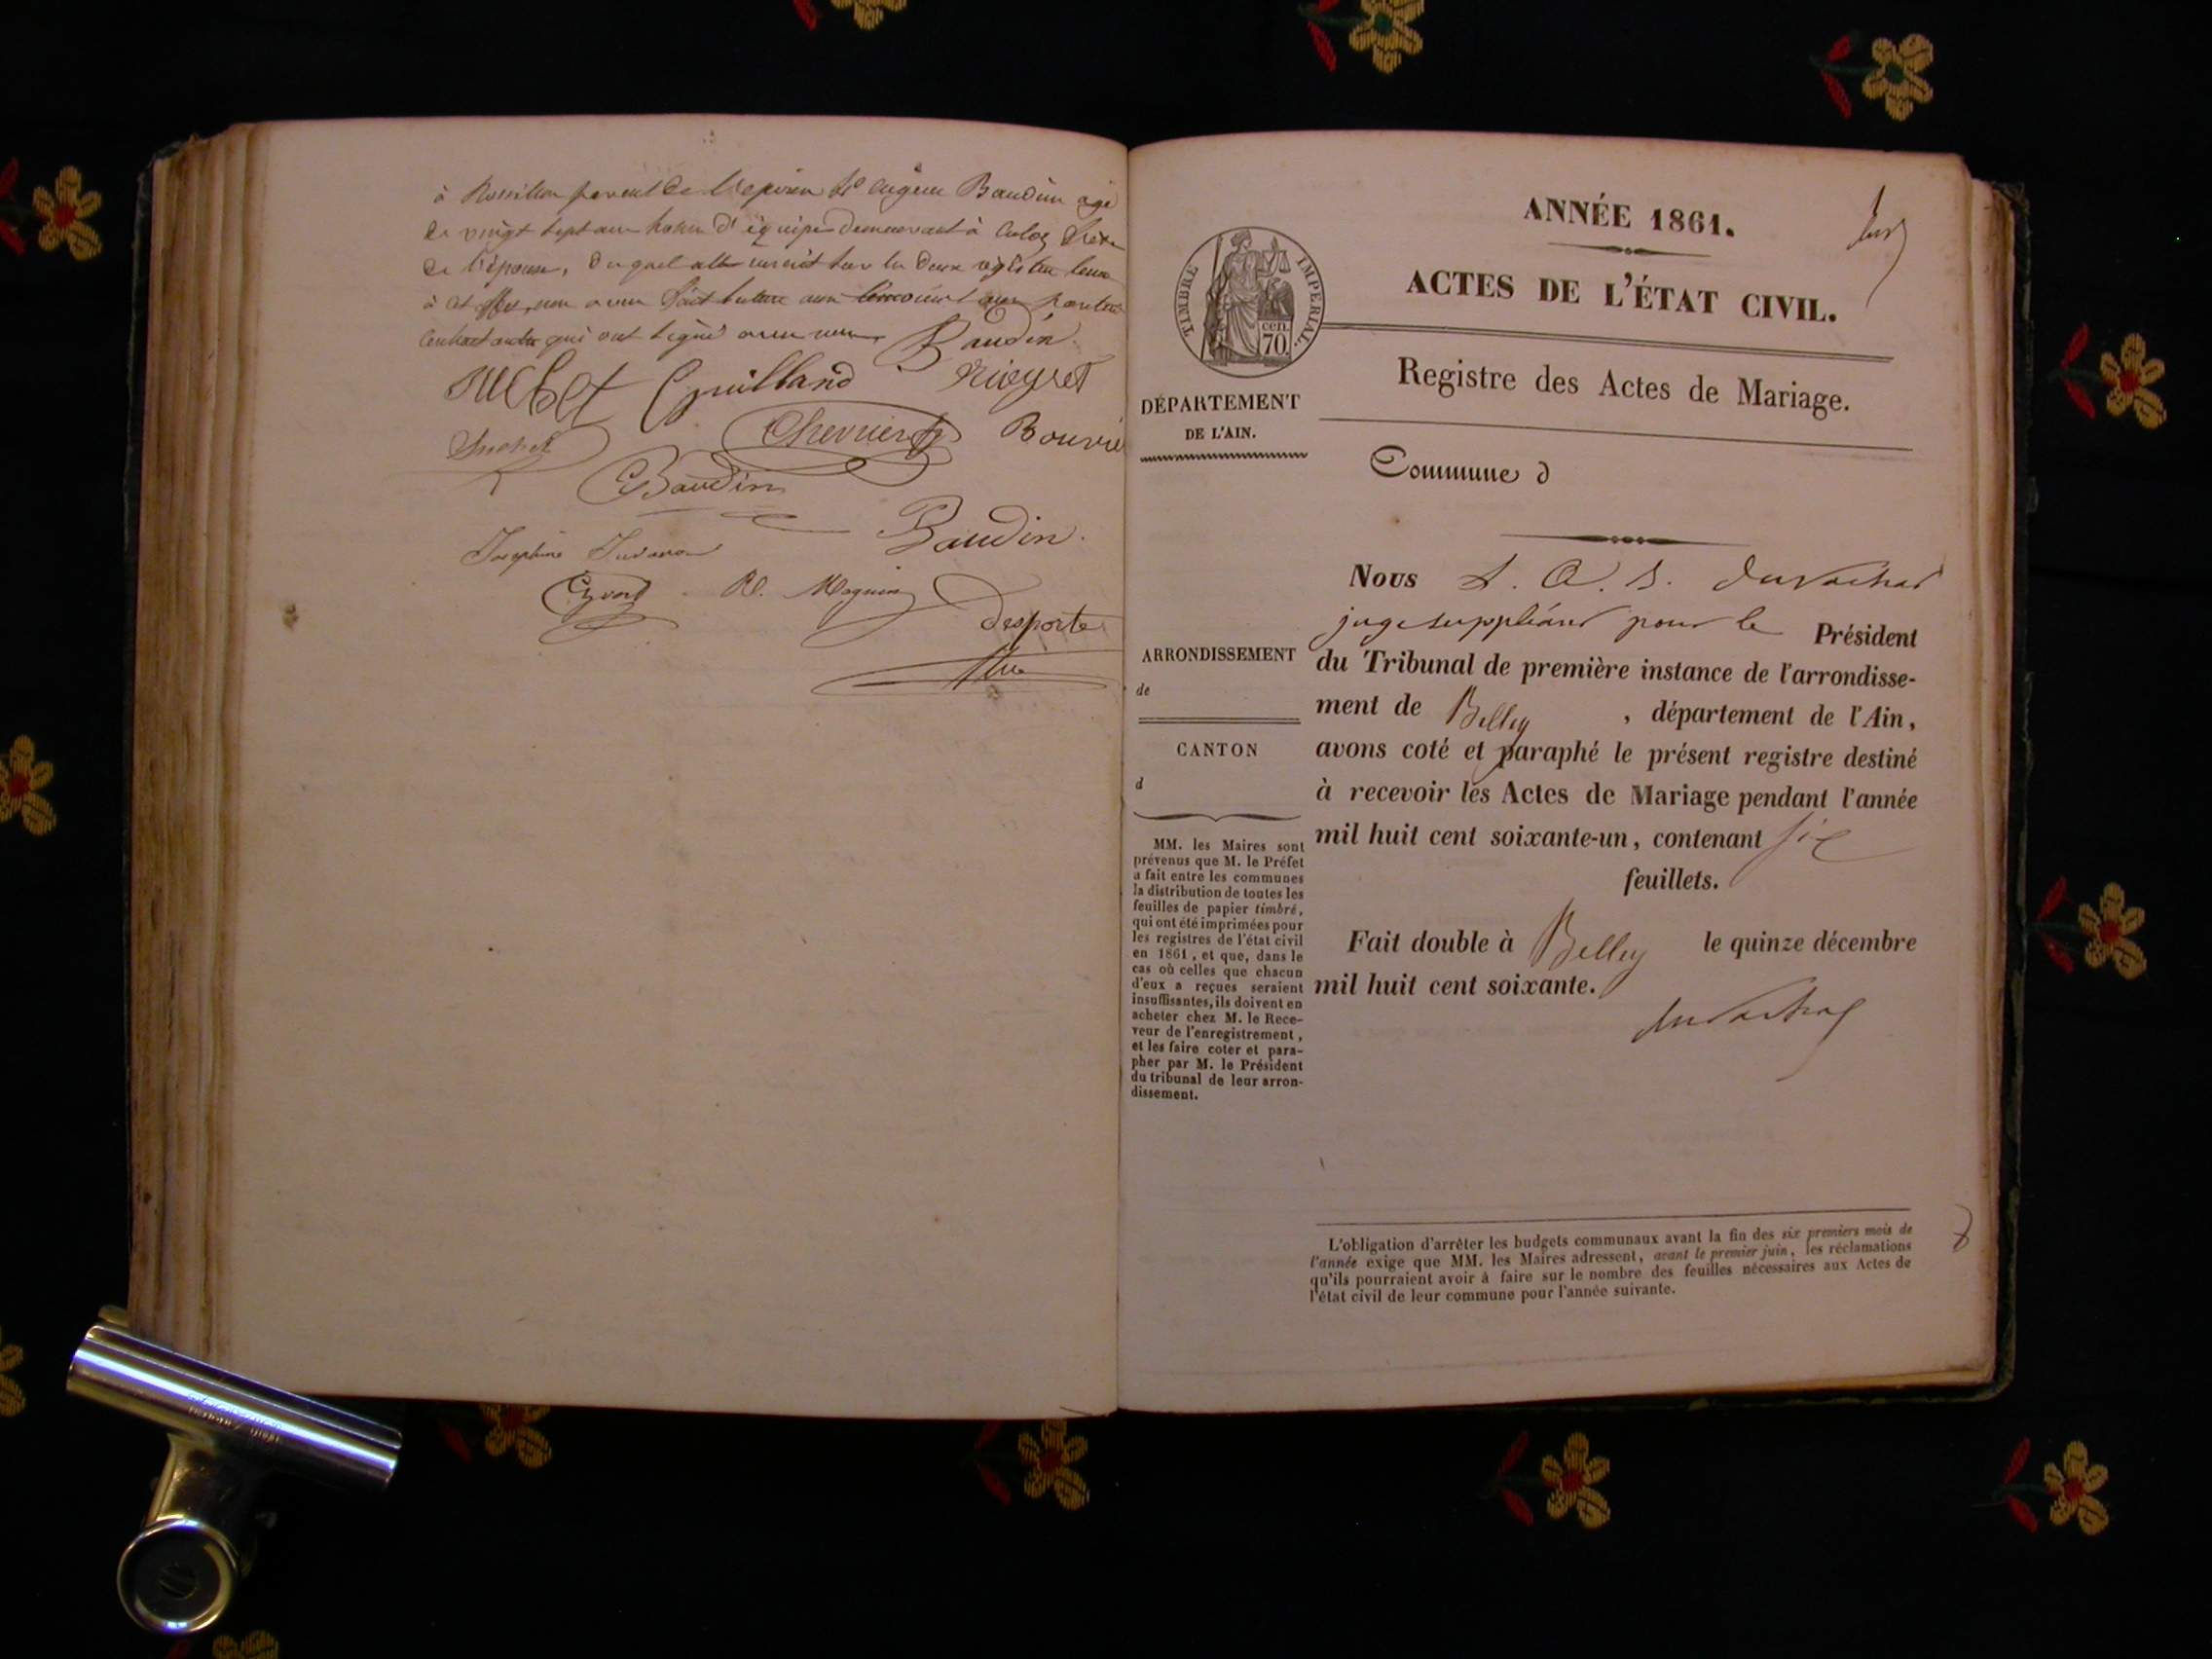 à Rossillon parent de l'époux et Eugène Baudin agé
de vingt sept ans homme d'équipe demeurant à Culoz frère
de l'épouse, duquel acte inscrit sur les deux registres tenus
à cet effet, nous avons fait lecture aux parties
contractantes qui ont signé avec nous Baudin
Suchet Guilland Rieysset
Suchet Chevrier Bouvier
Baudin
Baudin.
Joséphine
Cyvoct Magnin
Desporte
ANNÉE 1861.
ACTES DE L'ÉTAT CIVIL.
TIMBRE IMPÉRIAL.
cen.
70.
Registre des Actes de Mariage.
DÉPARTEMENT
DE L'AIN.
Commune d
ARRONDISSEMENT
de
CANTON
d
MM. les Maires sont
prévenus que M. le Préfet
a fait entre les communes
la distribution de toutes les
feuilles de papier timbré,
qui ont été imprimées pour
les registres de l'état civil
en 1861, et que, dans le
cas où celles que chacun
d'eux a reçues seraient
insuffisantes, ils doivent en
acheter chez M. le Rece-
veur de l'enregistrement,
et les faire coter et para-
pher par M. le Président
du tribunal de leur arron-
dissement.
Nous
juge suppléant pour le Président
du Tribunal de première instance de l'arrondisse-
ment de Belley, département de l'Ain,
avons coté et paraphé le présent registre destiné
à recevoir les Actes de Mariage pendant l'année
mil huit cent soixante-un, contenant six
feuillets.
Fait double à Belley le quinze décembre
mil huit cent soixante.
L'obligation d'arrêter les budgets communaux avant la fin des six premiers mois de
l'année exige que MM. les Maires adressent, avant le premier juin, les réclamations
qu'ils pourraient avoir à faire sur le nombre des feuilles nécessaires aux Actes de
l'état civil de leur commune pour l'année suivante.